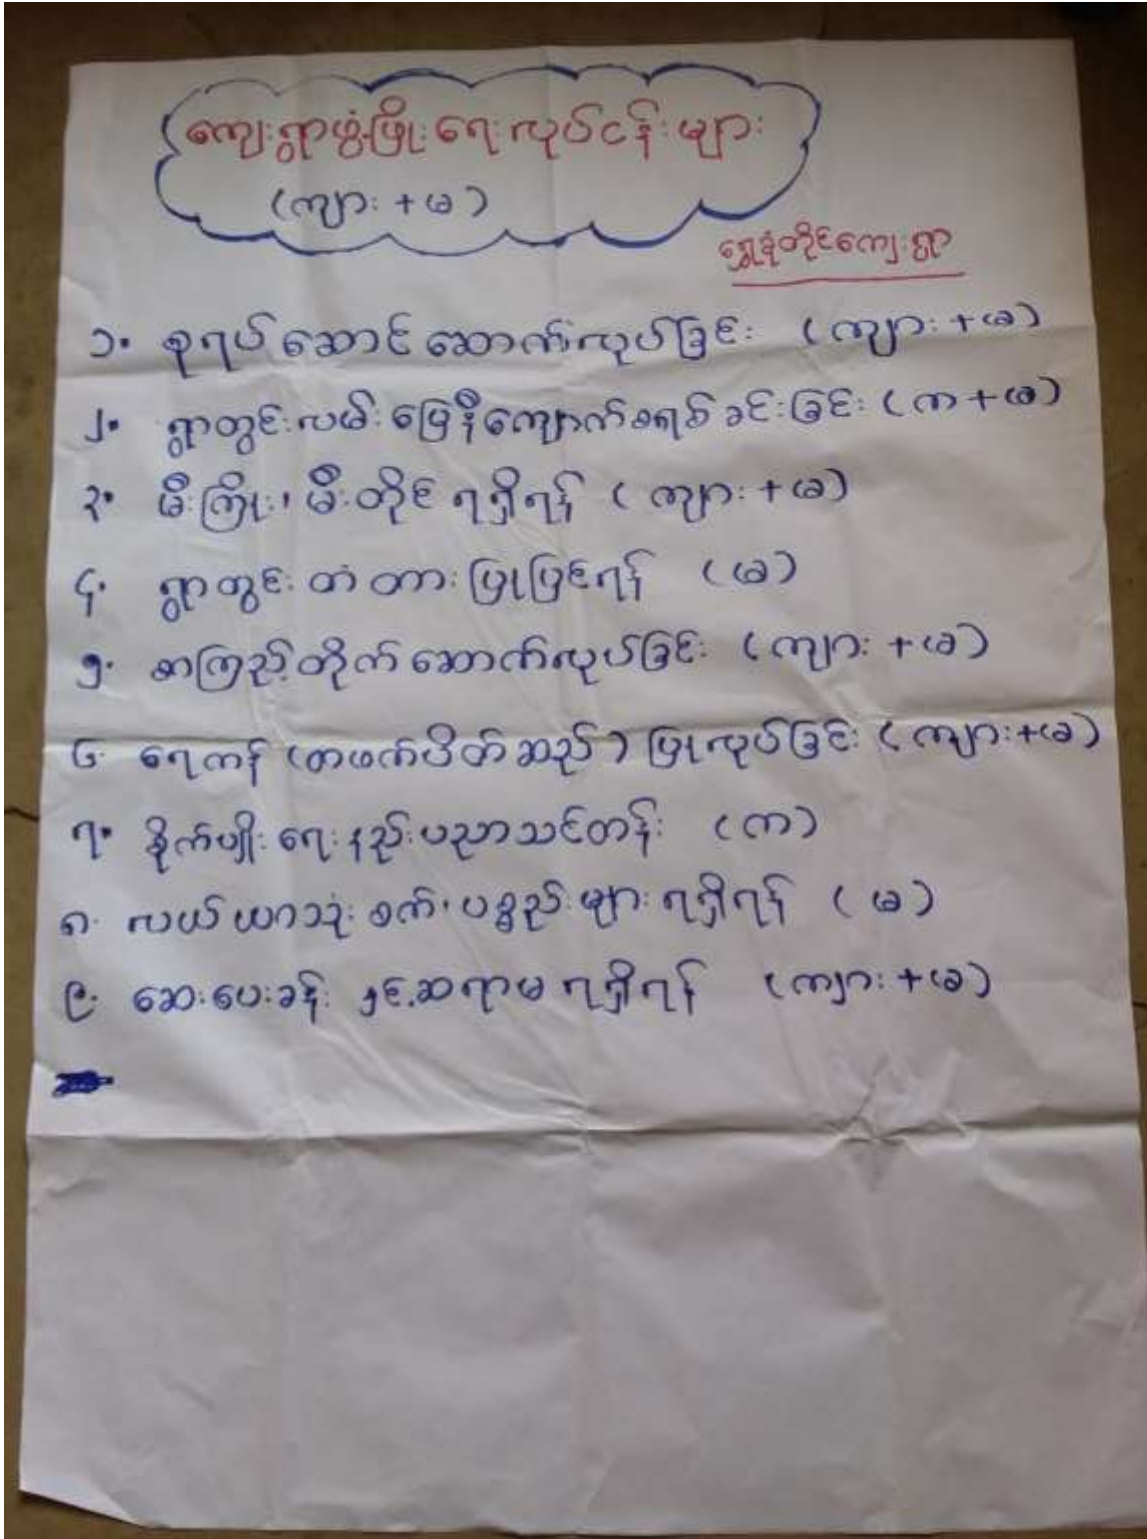 ကျေးရွာဖွံ့ဖြိုးရေးလုပ်ငန်းများ
(ကျား + မ)
ရွှေခုံတိုင်ကျေးရွာ
၁။ စုရပ်ဆောင် ဆောက်လုပ်ခြင်း (ကျား + မ)
၂။ ရွာတွင်းလမ်း မြေနီကျောက်စရစ်ခင်းခြင်း (က + မ)
၃။ မီးကြိုး၊ မီးတိုင် ရရှိရန် (ကျား + မ)
၄။ ရွာတွင်း တံတား ပြုပြင်ရန် (မ)
၅။ စာကြည့်တိုက် ဆောက်လုပ်ခြင်း (ကျား + မ)
၆။ ရေကန် (တဖက်ပိတ်ဆည်) ပြုလုပ်ခြင်း (ကျား + မ)
၇။ စိုက်ပျိုးရေးနည်းပညာသင်တန်း (က)
၈။ လယ်ယာသုံး စက်၊ ပစ္စည်းများ ရရှိရန် (မ)
၉။ ဆေးပေးခန်း နှင့်ဆရာမ ရရှိရန် (ကျား + မ)